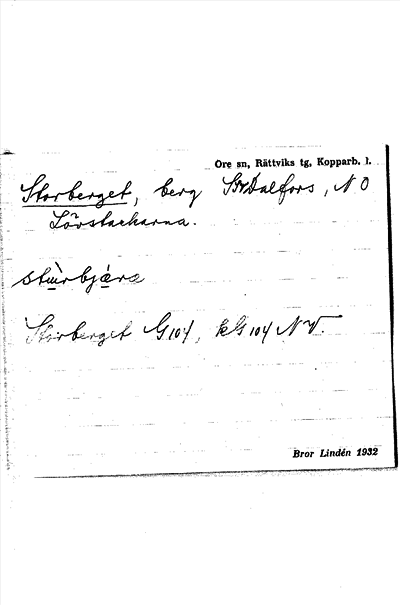 Ore sn, Rättviks tg, Kopparb. l.
Storberget, berg SvDalfors, NO
Lövstackarna.
stu̱rbjä̱ra
Storberget G104, kG104 NV.
Bror Lindén 1932